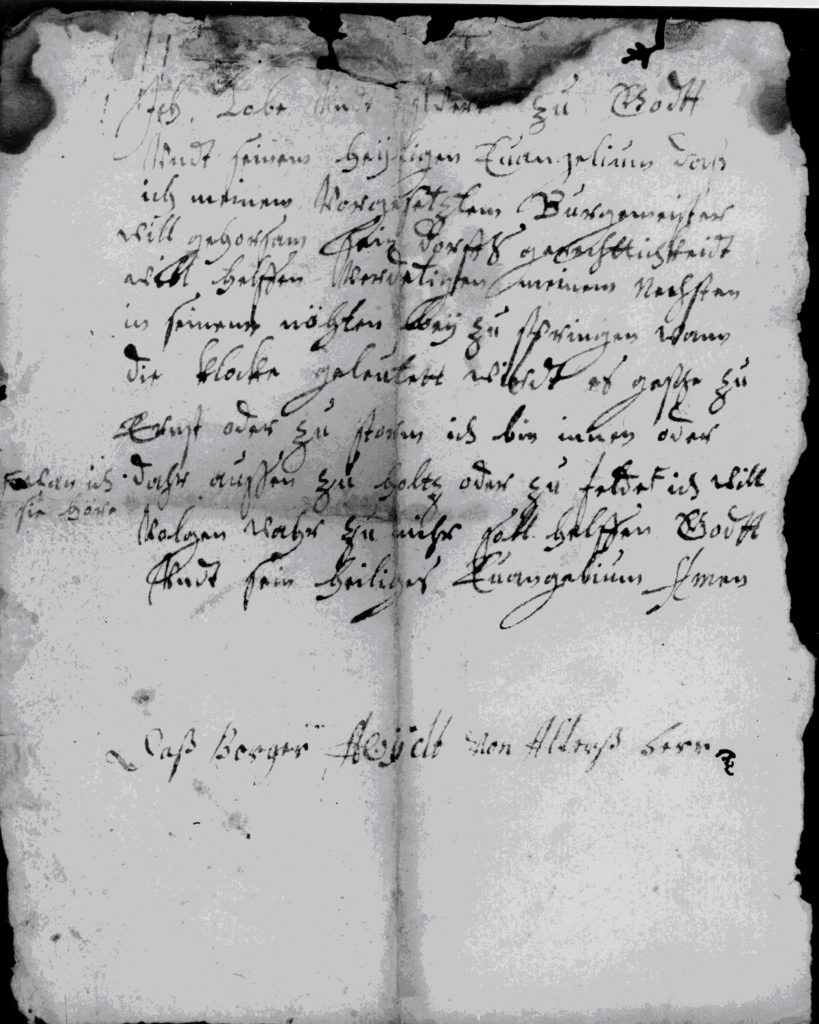 Ich Lobe Undt schwere zu Godtt
Undt seinem heyligen Euangelium daß
ich meinem Vorgesetztem Burgemeister
will gehorsam sein dorffs gerechttichkeidt
will helffen Verdetigen meinem Nechsten
in seinenn nöhten bey zu springen wann
die klocke geleutett wirdt es gesche zu
Ernst oder zu storm ich bin innen oder
dahr aussen zu holtz oder zu felde ich will
wan ich
sie höre
Volgen wahr zu mihr sall helffen Godtt
Undt sein heiliges Euangelium Amen
Daß Borger Eÿdt von Alterß herr